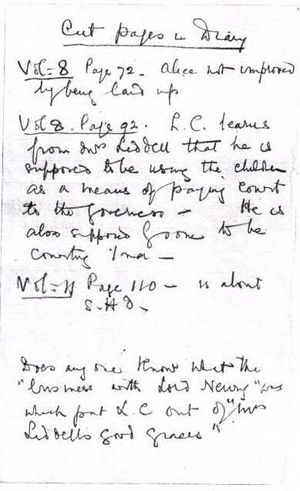 Cut pages in Diary
Vol-8 Page 72. Alice not improved
by being laid up
Vol 8. Page 92. L.C. learns
from Mrs Liddell that he is
supposed to be using the children
as a means of paying court
to the governess – He is
also supposed by some to be
courting Ina –
Vol-11 Page 110 – is about
Does any one know what the
"business with Lord Newry" was
which put L.C out of "Mrs
Liddell's good graces"